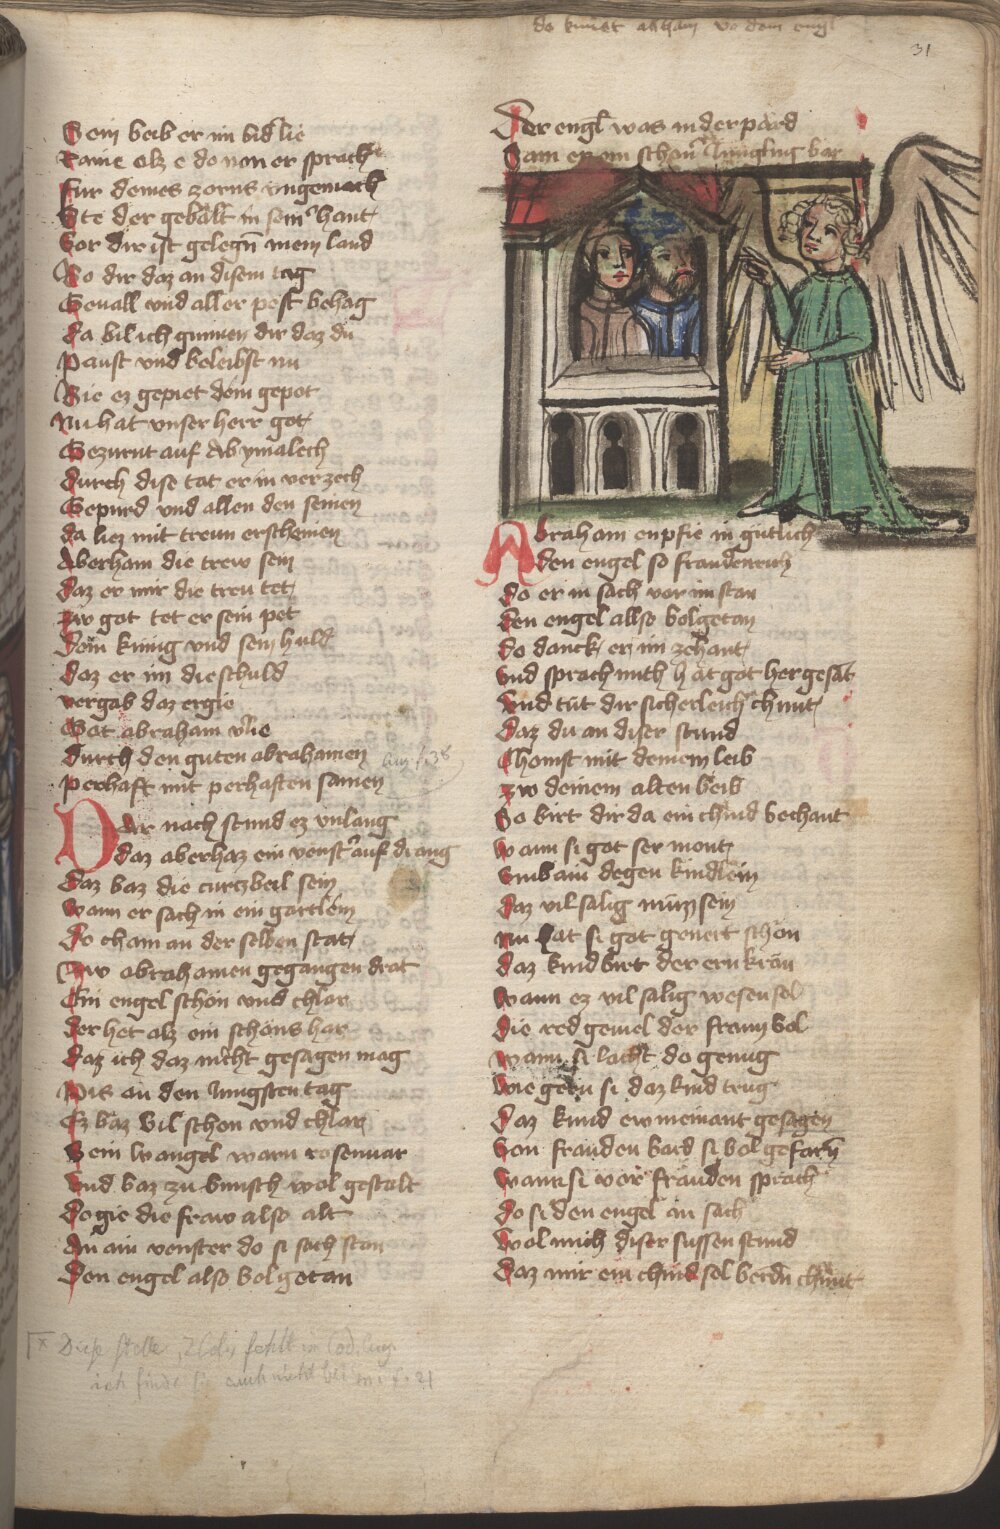 31
Sein beib er im bid lie
Raine alz e do von er sprach
Fur deines zorns ungemach
Ste der gebalt in seiner hant
Vor dir ist gelegn mein land
So dir daz an disem tag
Gevall und aller pest behag
Da bil ich gunnen dir daz du
Paust und beleibst nu
Sie ez gepiet dein gepot
Nu hat unser herr got
Gezurnt auf Abymalech
Durch dise tat er in verzech
Gepurd und allen den seinen
da liez mit treun erscheinen
Aberham die trew sein
daz er mir die treu tet
zw got tet er sein pet
Dem kunig und sein huld
daz er im die schuld
vergab daz ergie
Got abraham vlie
Durch den guten abrahamen
perhaft mit perhaften samen
Dar nach stund ez unlang
daz aberhaz ein venster auf di ang
Daz baz die curtzbeil sein
Wann er sach in ein gartlein
Do cham an der selben stat
Zw abrahamen gegangen drat
Ein engel schon und chlar
der het alz ein schons har
daz ich daz nicht gesagen mag
Pis an den Jungsten tag
Ez baz vil schon und chlar
Sein wangel warn rosenvar
Und baz zu bunsch wol gestalt
Do gie die fraw also alt
An ain venster do si sach stan
Den engel also bolgetan
Der engel was in der pard
Sam er im schoner Jungling bar
Abraham enpfie in gutlich
den engel so fraudenreich
Do er in sach vor im stan
den engel allso bolgetan
Do danck er im zehant
Und sprach mich hat got her gesat
Und tut dir sicherleich chunt
Daz du an diser stund
Chomst mit deinem leib
Zw deinem alten beib
So birt dir da ein chind bechant
wann si got ser mont
Umb ain degen kindlein
Daz vil salig muz sein
Nu hat si got geneit schon
daz kind birt der ern kran
wann ez vil salig wesen sol
die red geviel der frawn bol
wann si lacht do genug
wie gern si daz kind trug
Daz kund ew niemant gesagen
Von frauden bard si bol gefarn
wann si vor frauden sprach
do si den engel an sach
wol mich diser sussen stund
Daz mir ein chind sol berdn chunt